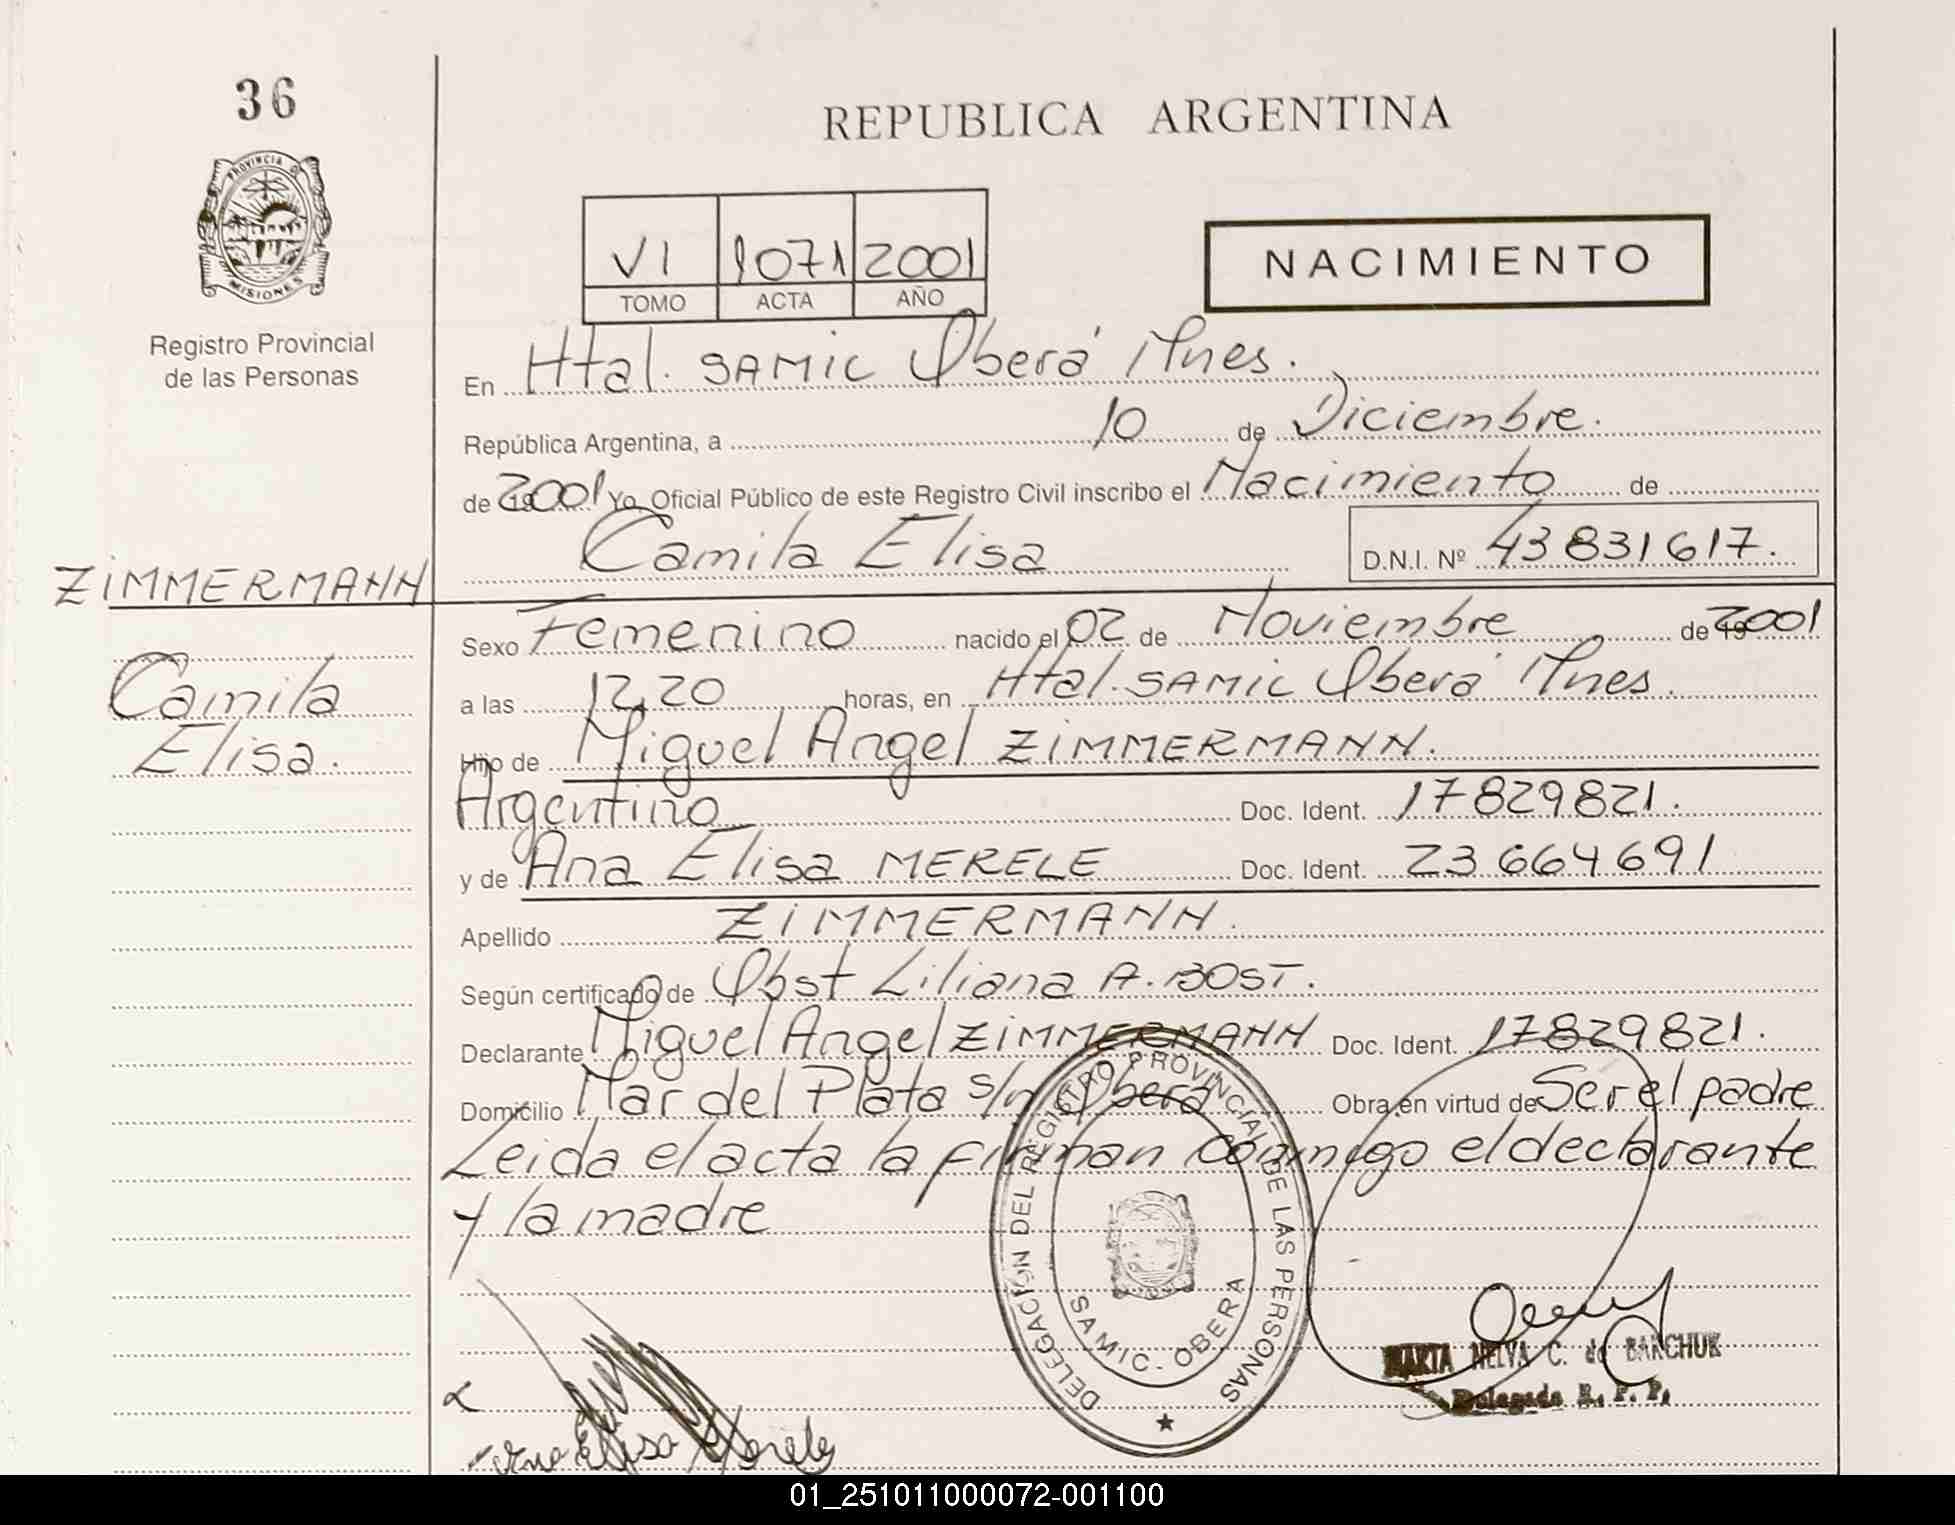 36
REPUBLICA ARGENTINA
PROVINCIA D
MISIONES
VI 1071 2001
TOMO ACTA AÑO
NACIMIENTO
Registro Provincial
de las Personas
En Htal. SAMIC Oberá Mnes.
República Argentina, a 10 de Diciembre.
de 2001 Yo, Oficial Público de este Registro Civil inscribo el Nacimiento de
Camila Elisa D.N.I. Nº 43831617.
ZIMMERMANN
Camila
Elisa.
Sexo Femenino nacido el 02 de Noviembre de 2001
a las 12,20 horas, en Htal. SAMIC Oberá Mnes.
Hijo de Miguel Angel ZIMMERMANN.
Argentino Doc. Ident. 17829821.
y de Ana Elisa MERELE Doc. Ident. 23664691
Apellido ZIMMERMANN.
Según certificado de Obst Liliana A. BOST.
Declarante Miguel Angel ZIMMERMANN Doc. Ident. 17829821.
Domicilio Mar del Plata s/n Oberá Obra en virtud de Ser el padre
Leida el acta la firman conmigo el declarante
y la madre
DELEGACIÓN DEL REGISTRO PROVINCIAL DE LAS PERSONAS
SAMIC - OBERA
MARTA NELVA C. de BANCHUK
Delegada R. P. P.
Ana Elisa Merele
01_251011000072-001100